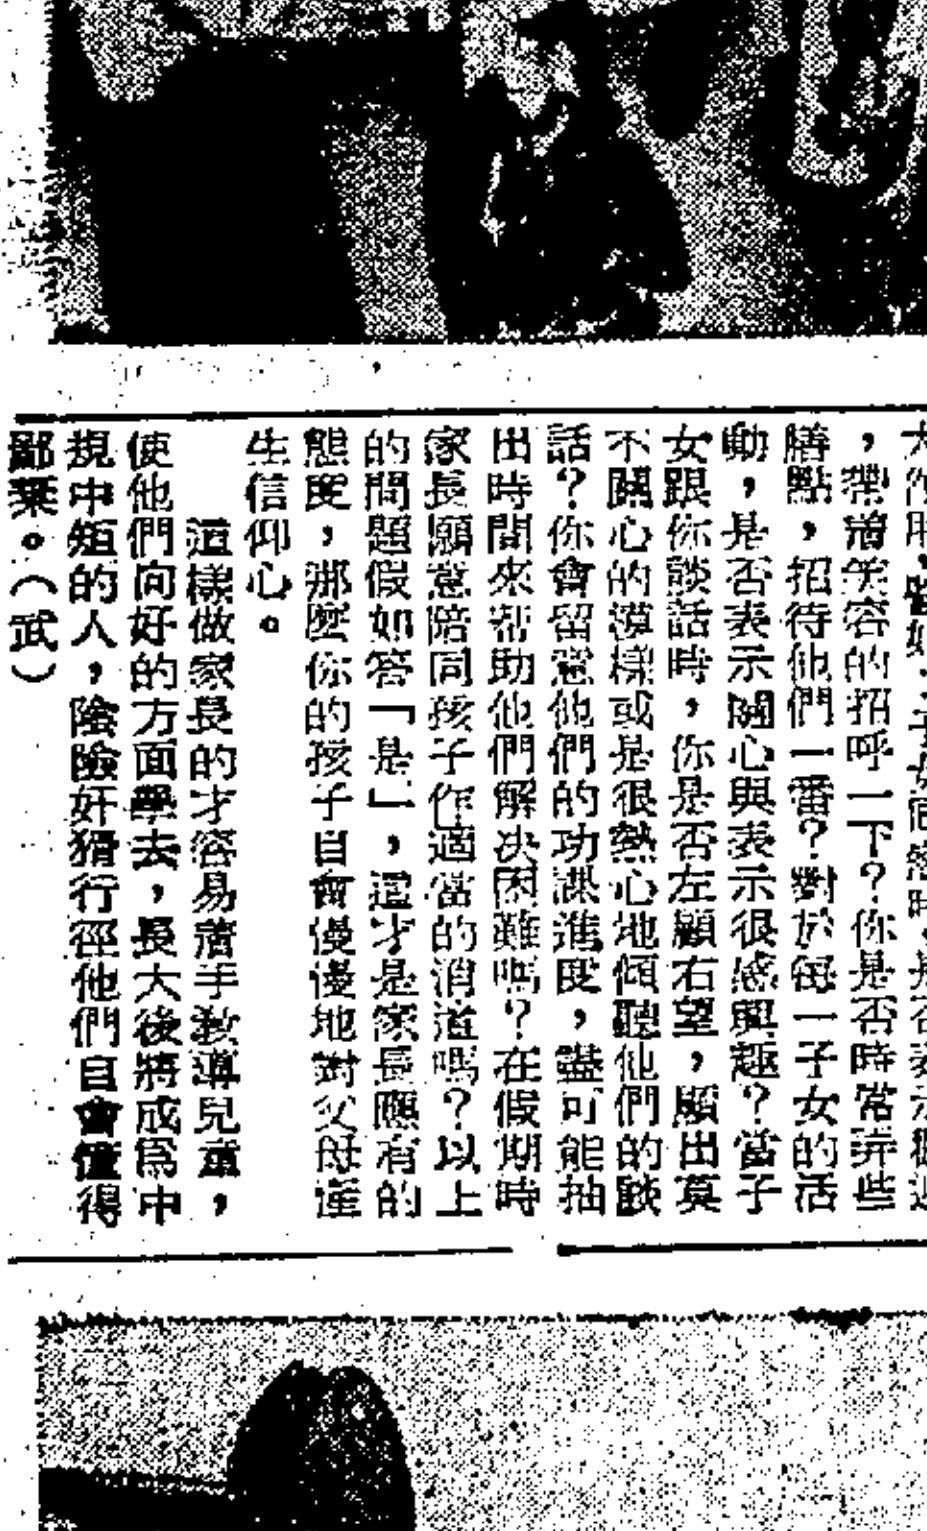 大作用，譬如：子女回時，是否表示歡迎
，帶着笑容的招呼一下？你是否時常弄些
膳點，招待他們一番？對於每一子女的活
動，是否表示關心與表示很感興趣？當子
女跟你談話時，你是否左顧右望，顯出莫
不關心的漠樣或是很熱心地傾聽他們的談
話？你會留意他們的功課進度，盡可能抽
出時間來帮助他們解决困難嗎？在假期時
家長願意陪同孩子作適當的消遣嗎？以上
的問題假如答「是」，這才是家長應有的
態度，那麽你的孩子自會慢慢地對父母產
生信仰心。
這樣做家長的才容易着手教導兒童，
使他們向好的方面學去，長大後將成爲中
規中矩的人，陰險奸猾行徑他們自會懂得
鄙棄。（武）